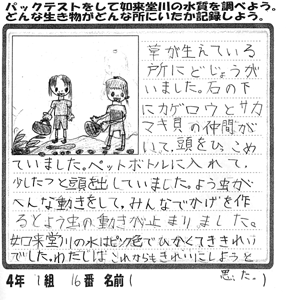 パックテストをして如来堂川の水質を調べよう。
どんな生き物がどんな所にいたか記録しよう。
草が生えている
所にどじょうが
いました。石の下
にカゲロウとサカ
マキ貝の仲間が
いて、頭をひっこめ
ていました。ペットボトルに入れて、
少したつと頭を出していました。よう虫が
へんな動きをして、みんなでかげを作
るとよう虫の動きが止まりました。
如来堂川の水はピンク色でひかくてききれい
でした。わたしは これならもきれいにしようと
思った。
4年 1組 16番 名前(